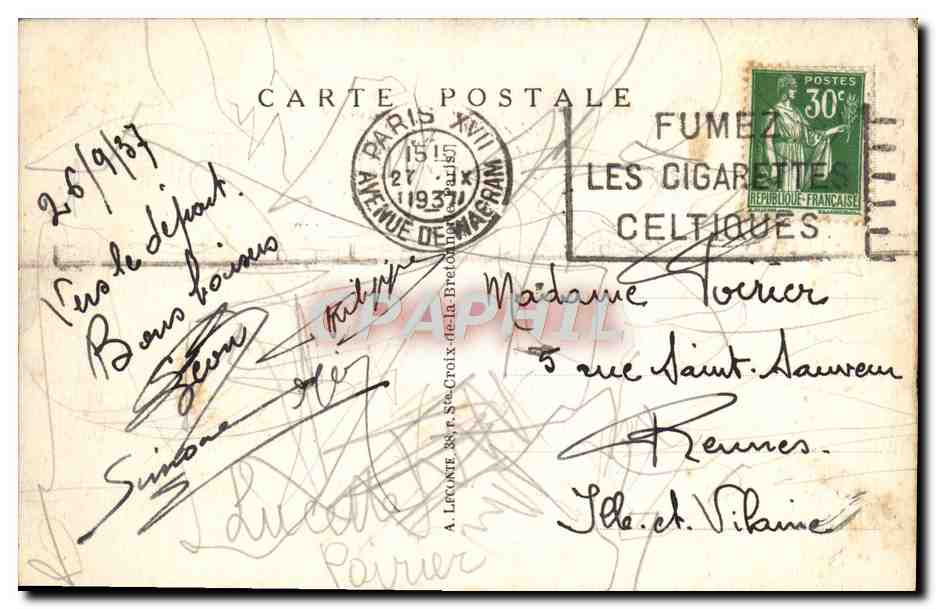 CARTE POSTALE
26/9/37
Vers le départ.
Bons baisers
Léon
Philippe
Simone
Lucette
Poirier
PARIS XVII
15 15
27 · X
1937
AVENUE DE WAGRAM
FUMEZ
LES CIGARETTES
CELTIQUES
POSTES
30c
REPUBLIQUE·FRANÇAISE
CPAPHIL
A. LECONTE, 38, r. Ste-Croix-de-la-Bretonnerie, Paris
Madame Poirier
5 rue Saint-Sauveur
Rennes.
Ille-et-Vilaine